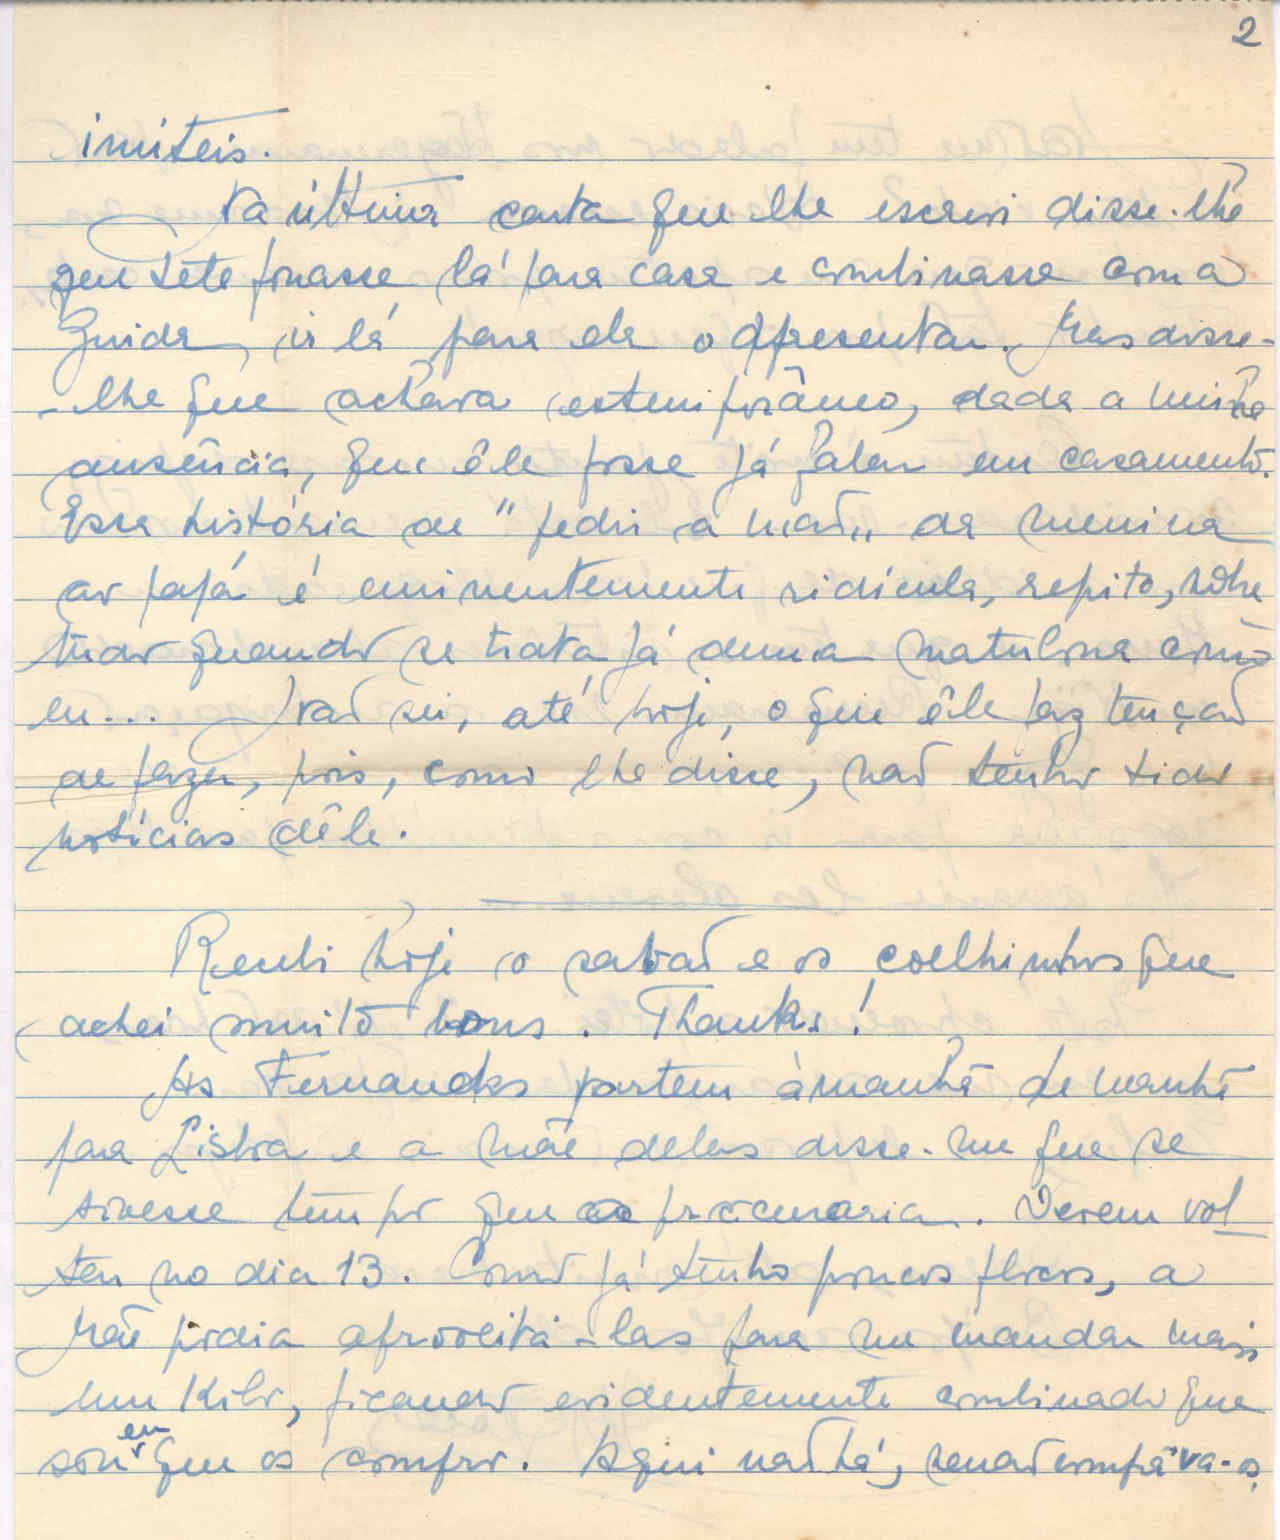 2
imiteis.
Na última carta que lhe escrevi disse-lhe
que telefonasse lá para casa e combinasse com a
Guida, ir lá para ela o apresentar. Mas disse-
-lhe que achava extemporâneo, dada a minha
ausência, que êle fosse já falar em casamento.
Essa história de "pedir a mão" da menina
ao papá é eminentemente ridícula, repito, sobre
tudo quando se trata já duma matulona como
eu... Não sei, até hoje, o que êle faz tenção
de fazer, pois, como lhe disse, não tenho tido
notícias dêle.
Recebi hoje o sabão e os coelhinhos que
achei muito bons. Thanks!
As Fernandes partem àmanhã de manhã
para Lisboa e a mãe delas disse-me que se
tivesse tempo que a procuraria. Devem vol
tar no dia 13. Como já tenho poucos flocos, a
Mãe podia aproveitá-las para me mandar mais
um Kilo, ficando evidentemente combinado que
sou eu que os compro. Aqui não há, senão comprava-os